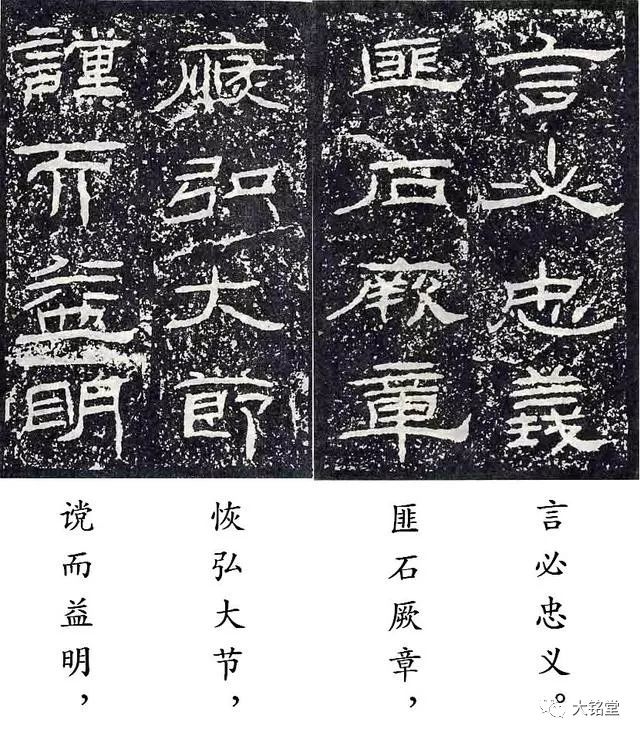 言必忠義
匪石厥章
弘大節
讜而益明
言必忠义。
匪石厥章，
恢弘大节，
谠而益明，
大铭堂